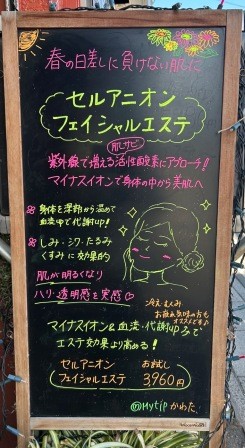 春の日差しに負けない肌に
セルアニオン
フェイシャルエステ
肌サビ
紫外線で増える活性酸素にアプローチ!
マイナスイオンで身体の中から美肌へ
身体を深部から温めて
血流中で代謝up!
しみ・シワ・たるみ
くすみに効果的
肌が明るくなり
ハリ・透明感を実感♡
冷え むくみ
お疲れ気味の方も
オススメです♪
マイナスイオン&血流・代謝upで
エステ効果より高める!
セルアニオン お試し
フェイシャルエステ 3,960円
@Mytip かわた